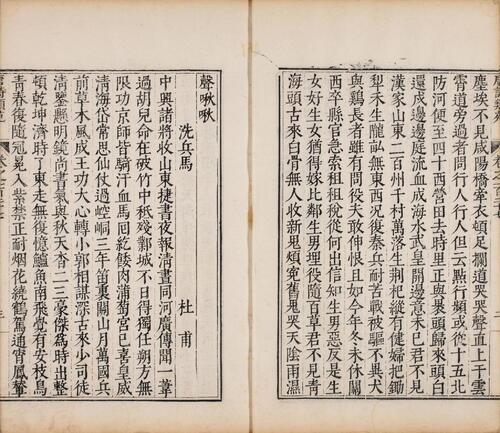 塵埃不見咸陽橋牽衣頓足攔道哭哭聲直上干雲
霄道旁過者問行人行人但云點行頻或從十五北
防河便至四十西營田去時里正與裹頭歸來頭白
還戍邊邊庭流血成海水武皇開邊意未已君不見
漢家山東二百州千村萬落生荆杞縱有健婦把鋤
犁禾生隴畝無東西況復秦兵耐苦戰被驅不異犬
與鷄長者雖有問役夫敢伸恨且如今年冬未休關
西卒縣官急索租租稅從何出信知生男惡反是生
女好生女猶得嫁比鄰生男埋沒隨百草君不見青
海頭古來白骨無人收新鬼煩寃舊鬼哭天陰雨濕
聲啾啾
洗兵馬
杜甫
中興諸將收山東捷書夜報清晝同河廣傳聞一葦
過胡兒命在破竹中秪殘鄴城不日得獨任朔方無
限功京師皆騎汗血馬回紇餧肉蒲萄宮已喜皇威
清海岱常思仙仗過崆峒三年笛裏關山月萬國兵
前草木風成王功大心轉小郭相謀深古來少司徒
清鑒懸明鏡尚書氣與秋天杳二三豪傑為時出整
頓乾坤濟時了東走無復憶鱸魚南飛覺有安枝鳥
青春復隨冠冕入紫禁正耐烟花繞鶴駕通宵鳳輦